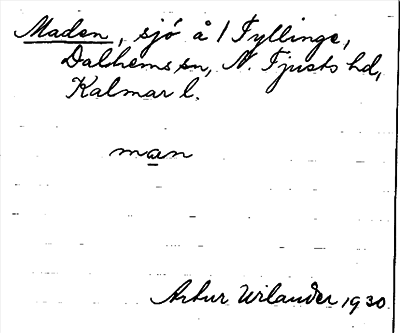 Maden, sjö å 1 Fyllinge,
Dalhems sn, N. Tjusts hd,
Kalmar l.
man
Artur Wilander 1930